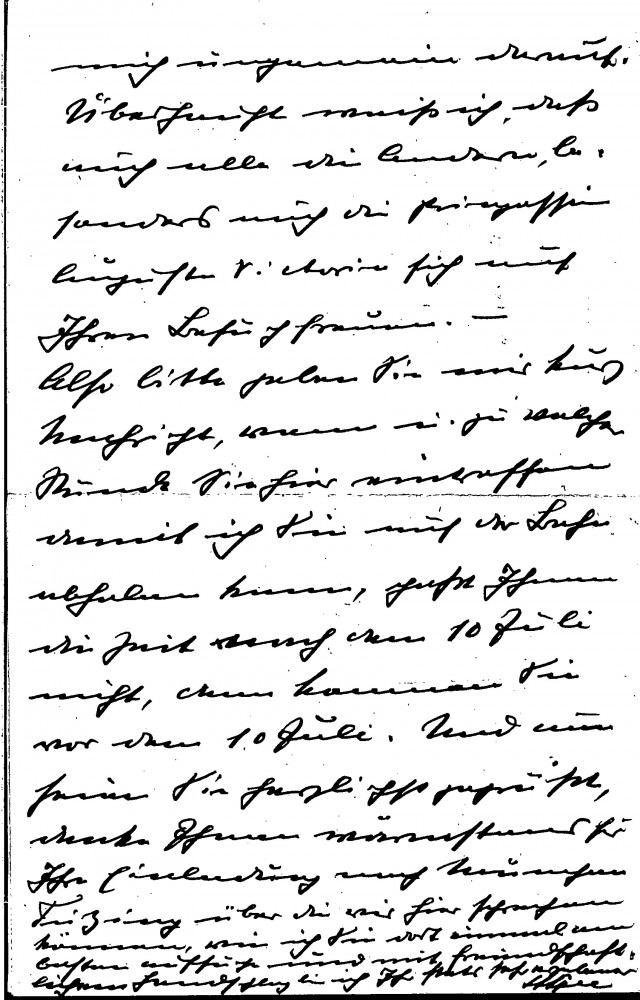 mich ungemein darauf.
Überhaupt weiß ich, daß
auch alle die Andern, be-
sonders auch die Prinzessin
Auguste Victoria sich auf
Ihren Besuch freuen. —
Also bitte geben Sie mir kurz
Nachricht, wann u. zu welcher
Stunde Sie hier eintreffen
damit ich Sie auf der Bahn
abholen kann, paßt Ihnen
die Zeit nach dem 10 Juli
nicht, dann kommen Sie
vor dem 10 Juli. Und nun
seien Sie herzlichst gegrüßt,
danke Ihnen wärmstens für
Ihre Einladung nach München
über die wir hier sprechen
können, wie ich Sie dort einmal am
besten aufsuche und mit freundschaft-
lichem Handschlag bin ich Ihr stets